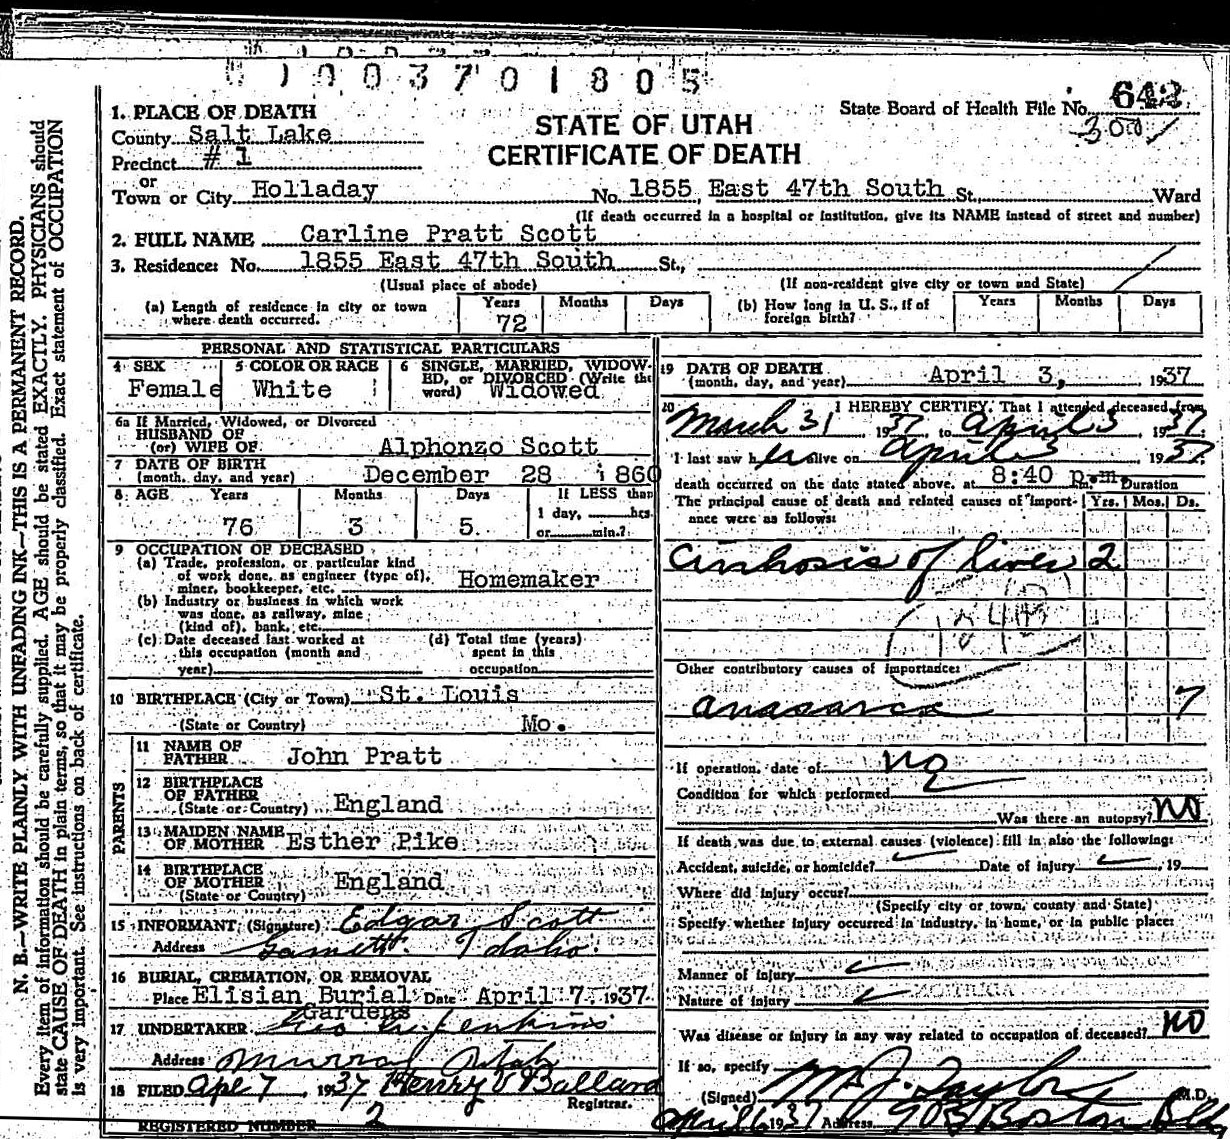 1003701805
State Board of Health File No. 642
300
STATE OF UTAH
CERTIFICATE OF DEATH
1. PLACE OF DEATH
County Salt Lake
Precinct # 1
or
Town or City Holladay No. 1855 East 47th South St., Ward
(If death occurred in a hospital or institution, give its NAME instead of street and number)
2. FULL NAME Carline Pratt Scott
3. Residence: No. 1855 East 47th South St.,
(Usual place of abode) (If non-resident give city or town and State)
(a) Length of residence in city or town where death occurred. Years 72 Months Days
(b) How long in U. S., if of foreign birth? Years Months Days
PERSONAL AND STATISTICAL PARTICULARS
4 SEX Female
5 COLOR OR RACE White
6 SINGLE, MARRIED, WIDOWED, or DIVORCED (Write the word) Widowed
6a If Married, Widowed, or Divorced
HUSBAND OF
(or) WIFE OF Alphonzo Scott
7 DATE OF BIRTH
(month, day, and year) December 28 1860
8 AGE Years Months Days If LESS than
76 3 5 1 day, hrs.
or min.?
9 OCCUPATION OF DECEASED
(a) Trade, profession, or particular kind
of work done, as engineer (type of),
miner, bookkeeper, etc. Homemaker
(b) Industry or business in which work
was done, as railway, mine
(kind of), bank, etc.
(c) Date deceased last worked at
this occupation (month and
year)
(d) Total time (years)
spent in this
occupation
10 BIRTHPLACE (City or Town) St. Louis
(State or Country) Mo.
PARENTS
11 NAME OF
FATHER John Pratt
12 BIRTHPLACE
OF FATHER
(State or Country) England
13 MAIDEN NAME
OF MOTHER Esther Pike
14 BIRTHPLACE
OF MOTHER England
(State or Country)
15 INFORMANT (Signature) Edgar Scott
Address Idaho.
16 BURIAL, CREMATION, OR REMOVAL
Place Elisian Burial Date April 7, 1937
Gardens
17 UNDERTAKER Jenkins
Address Murray Utah
18 FILED Apr 7, 1937 Henry V Ballard
Registrar.
REGISTERED NUMBER 2
19 DATE OF DEATH
(month, day, and year) April 3, 1937
20 I HEREBY CERTIFY, That I attended deceased from
March 31 1937 to April 3, 1937.
I last saw her alive on April 3 1937
death occurred on the date stated above, at 8:40 p.m. Duration
The principal cause of death and related causes of importance were as follows: Yrs. Mos. Ds.
Cirrhosis of liver 2
Other contributory causes of importance:
Anasarca 7
If operation, date of no
Condition for which performed
Was there an autopsy? no
If death was due to external causes (violence) fill in also the following:
Accident, suicide, or homicide? Date of injury , 19
Where did injury occur?
(Specify city or town, county and State)
Specify whether injury occurred in industry, in home, or in public place:
Manner of injury
Nature of injury
Was disease or injury in any way related to occupation of deceased? no
If so, specify
(Signed) Taylor M.D.
April 6 1937 Address Boston Bldg
N. B.—WRITE PLAINLY WITH UNFADING INK—THIS IS A PERMANENT RECORD.
Every item of information should be carefully supplied. AGE should be stated EXACTLY. PHYSICIANS should
state CAUSE OF DEATH in plain terms, so that it may be properly classified. Exact statement of OCCUPATION
is very important. See instructions on back of certificate.